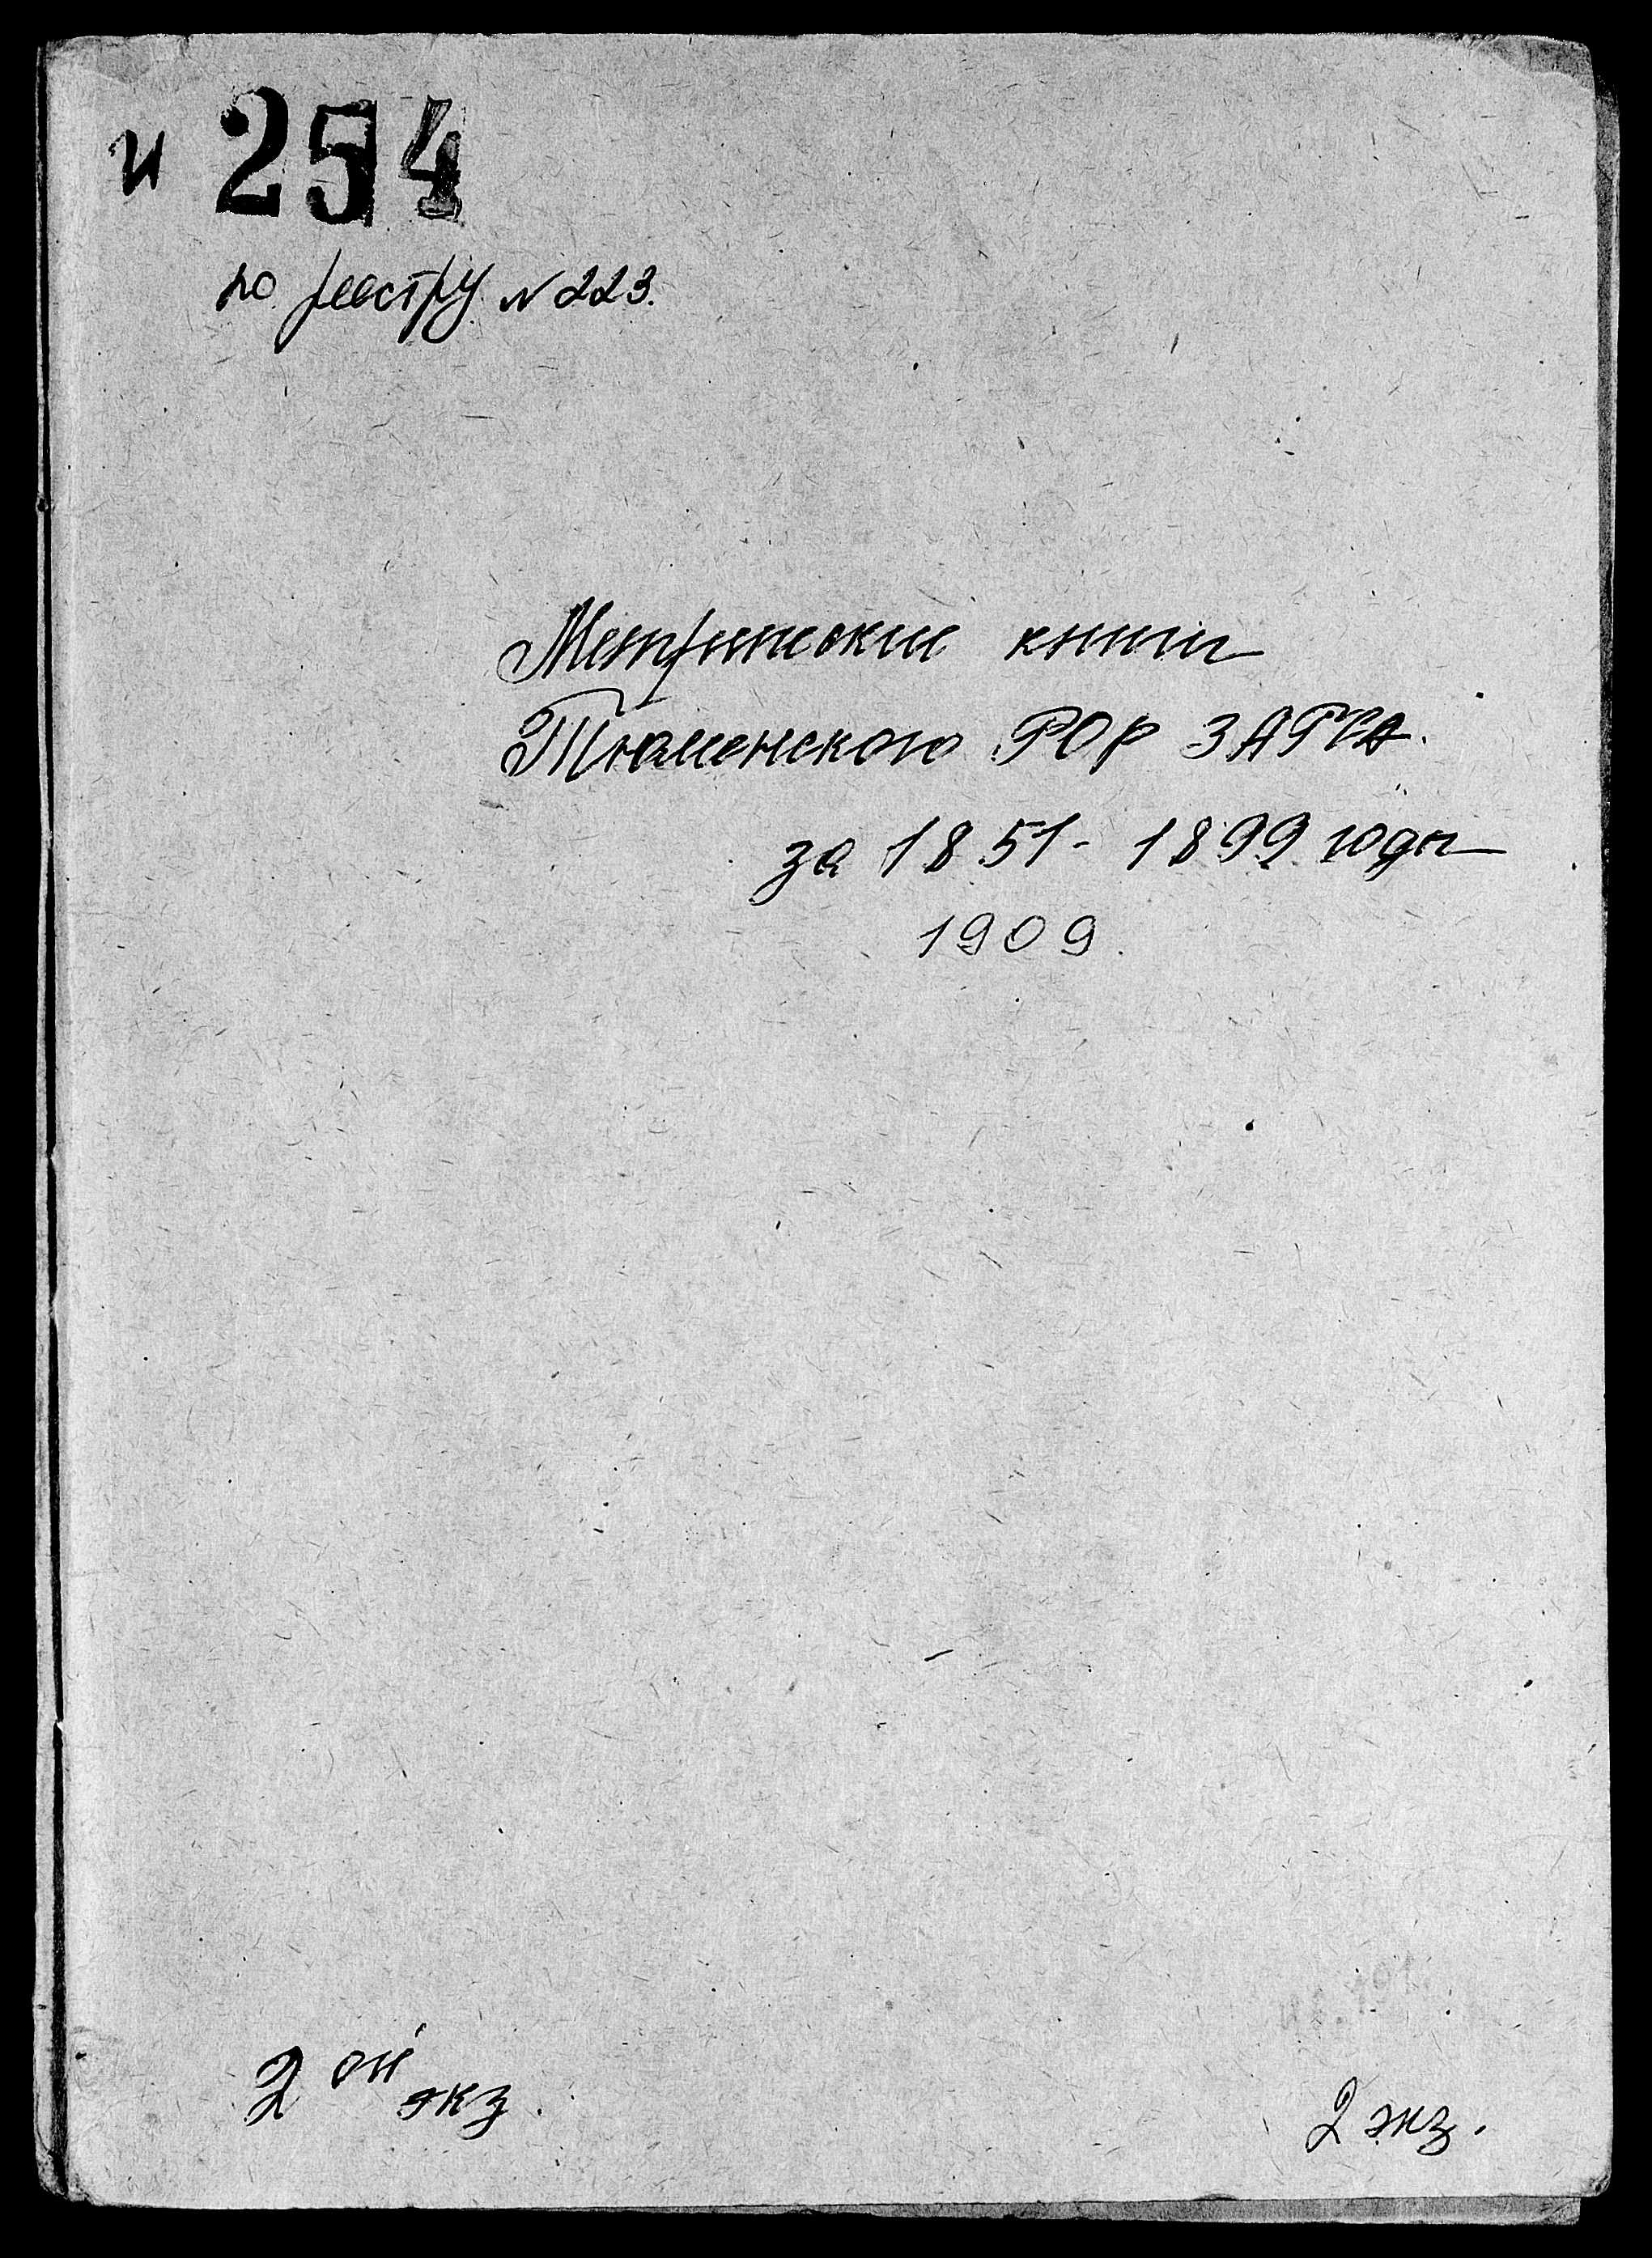 и 254
по реестру № 223.
Метрические книги
Тюменского РОР ЗАГСА.
за 1851-1899 годы
1909.
2 ой экз.
2 экз.